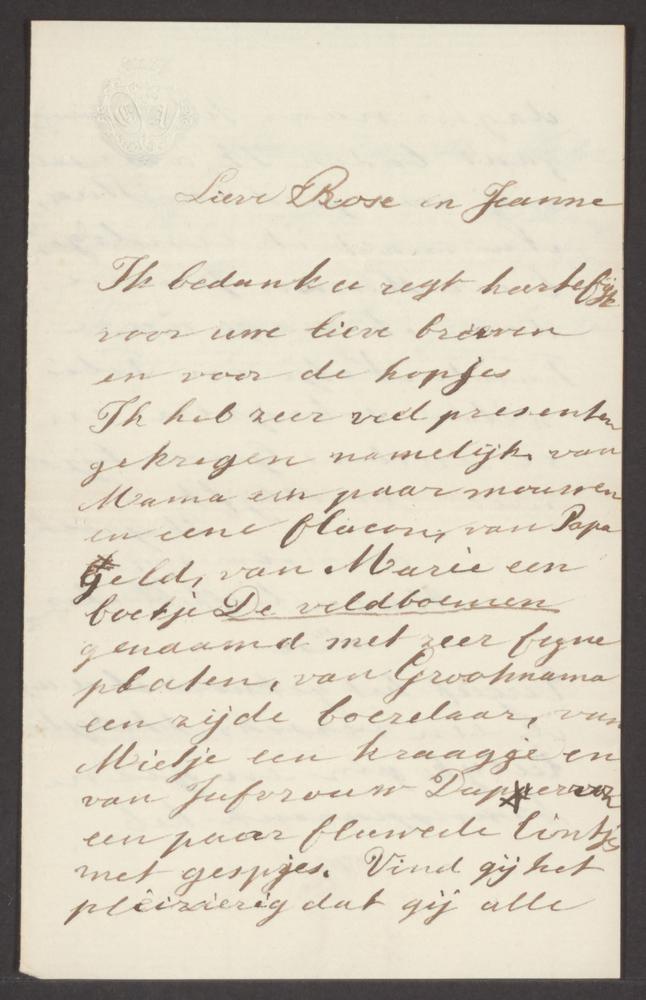 Lieve Rose en Jeanne
Ik bedank u regt hartelijk
voor uwe lieve brieven
en voor de hopjes
Ik heb zeer veel presenten
gekregen namelijk van
Mama een paar mouwen
en eene flacon, van Papa
geld, van Marie een
boekje De veldbloemen
genaamd met zeer fyne
platen, van Grootmama
een zijde boezelaar, van
Mietje een kraagje en
van Jufvrouw
een paar fluweele lintjes
met gespjes. Vind gij het
pleizierig dat gij alle